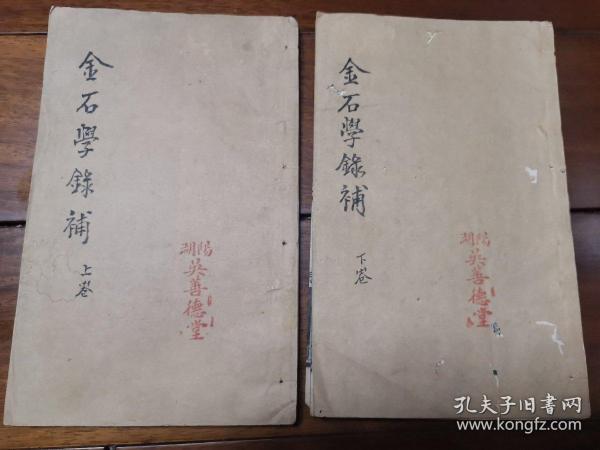 金石學錄補
上卷
湖陽
吳善德堂
金石學錄補
下卷
湖陽
吳善德堂
孔夫子旧书网
www.kongfz.com